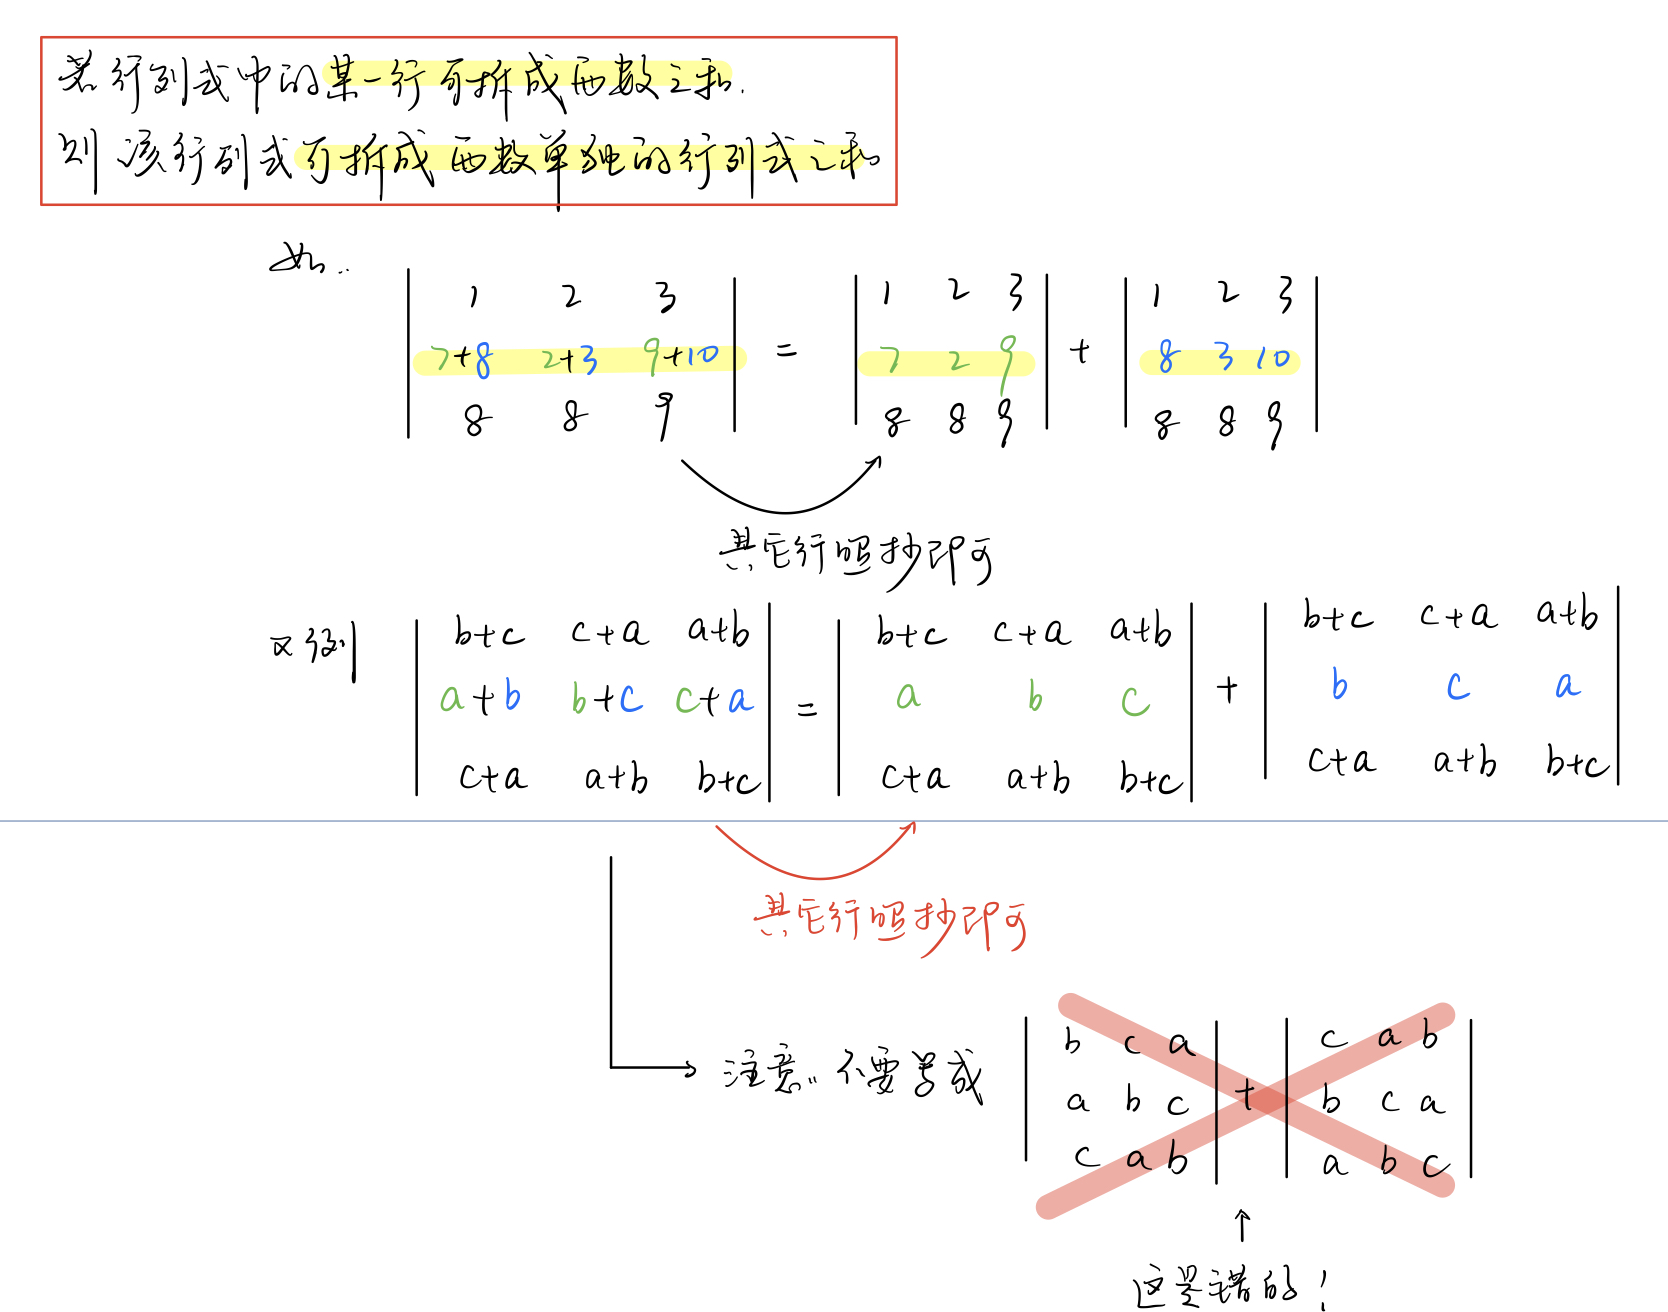 若行列式中的某一行可拆成两数之和.
则 该行列式可拆成两数单独的行列式之和
如:
| 1 2 3 |
| 7+8 2+3 9+10 | = | 7 2 9 | + | 8 3 10 |
| 8 8 9 |
| 1 2 3 |
| 8 8 9 |
| 1 2 3 |
| 8 8 9 |
其它行照抄即可
又例
| b+c c+a a+b |
| a+b b+c c+a | = | a b c | + | b c a |
| c+a a+b b+c |
| b+c c+a a+b |
| c+a a+b b+c |
| b+c c+a a+b |
| c+a a+b b+c |
其它行照抄即可
注意: 不要写成
| b c a | | c a b |
| a b c | + | b c a |
| c a b | | a b c |
↑
这是错的!